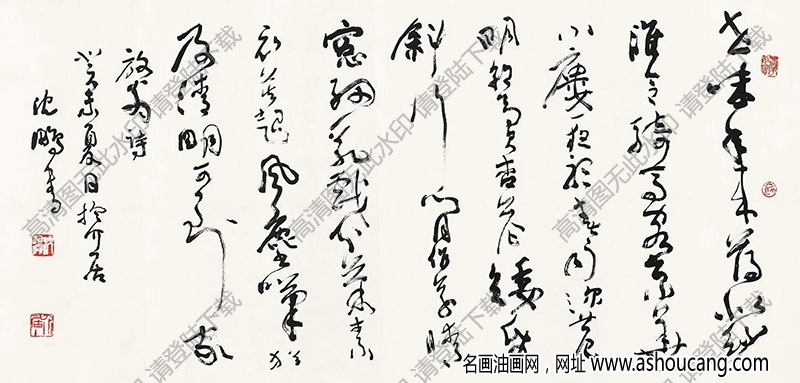 世味年来薄似纱
谁令骑马客京华
小楼一夜听春雨深巷
明朝卖杏花矮纸
斜行闲作草晴
窗细乳戏分茶素
衣莫起风尘叹犹
及清明可到家
放翁诗
癸未夏日於介居
沈鹏书
高清图无此水印·请登陆下载
名画油画网，网址 www.ashoucang.com